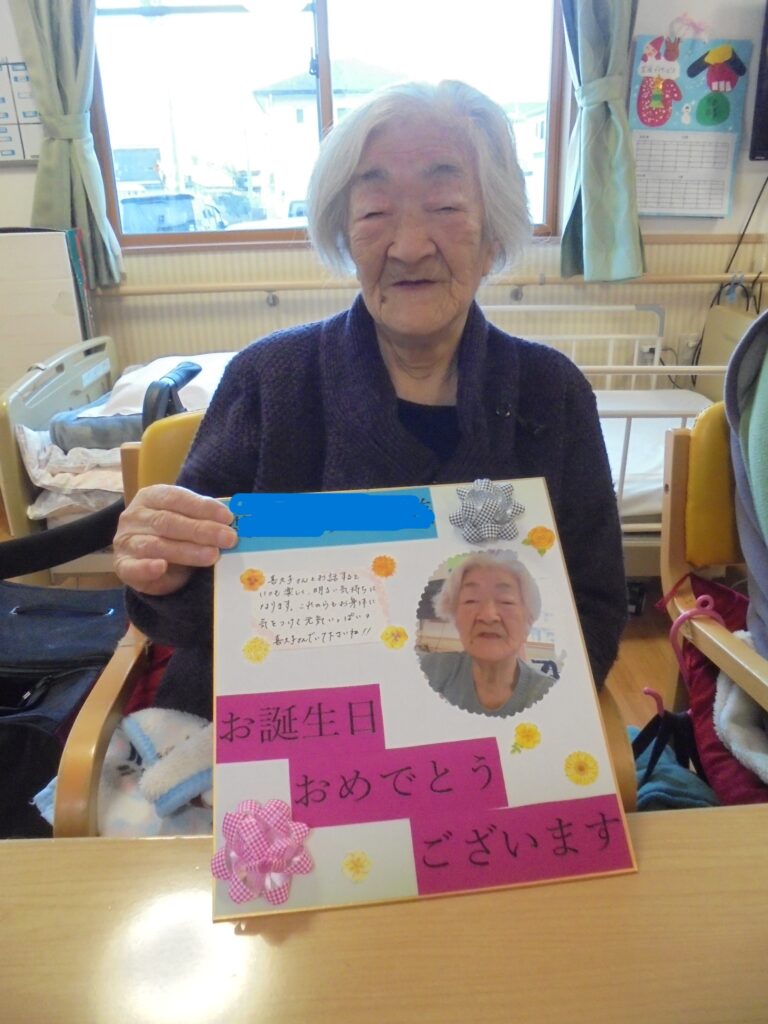 喜久子さんとお話すると
いつも楽しく、明るい気持ちに
なります。これからもお身体に
気をつけて元気いっぱいの
喜久子さんでいて下さいね!!
お誕生日
おめでとう
ございます